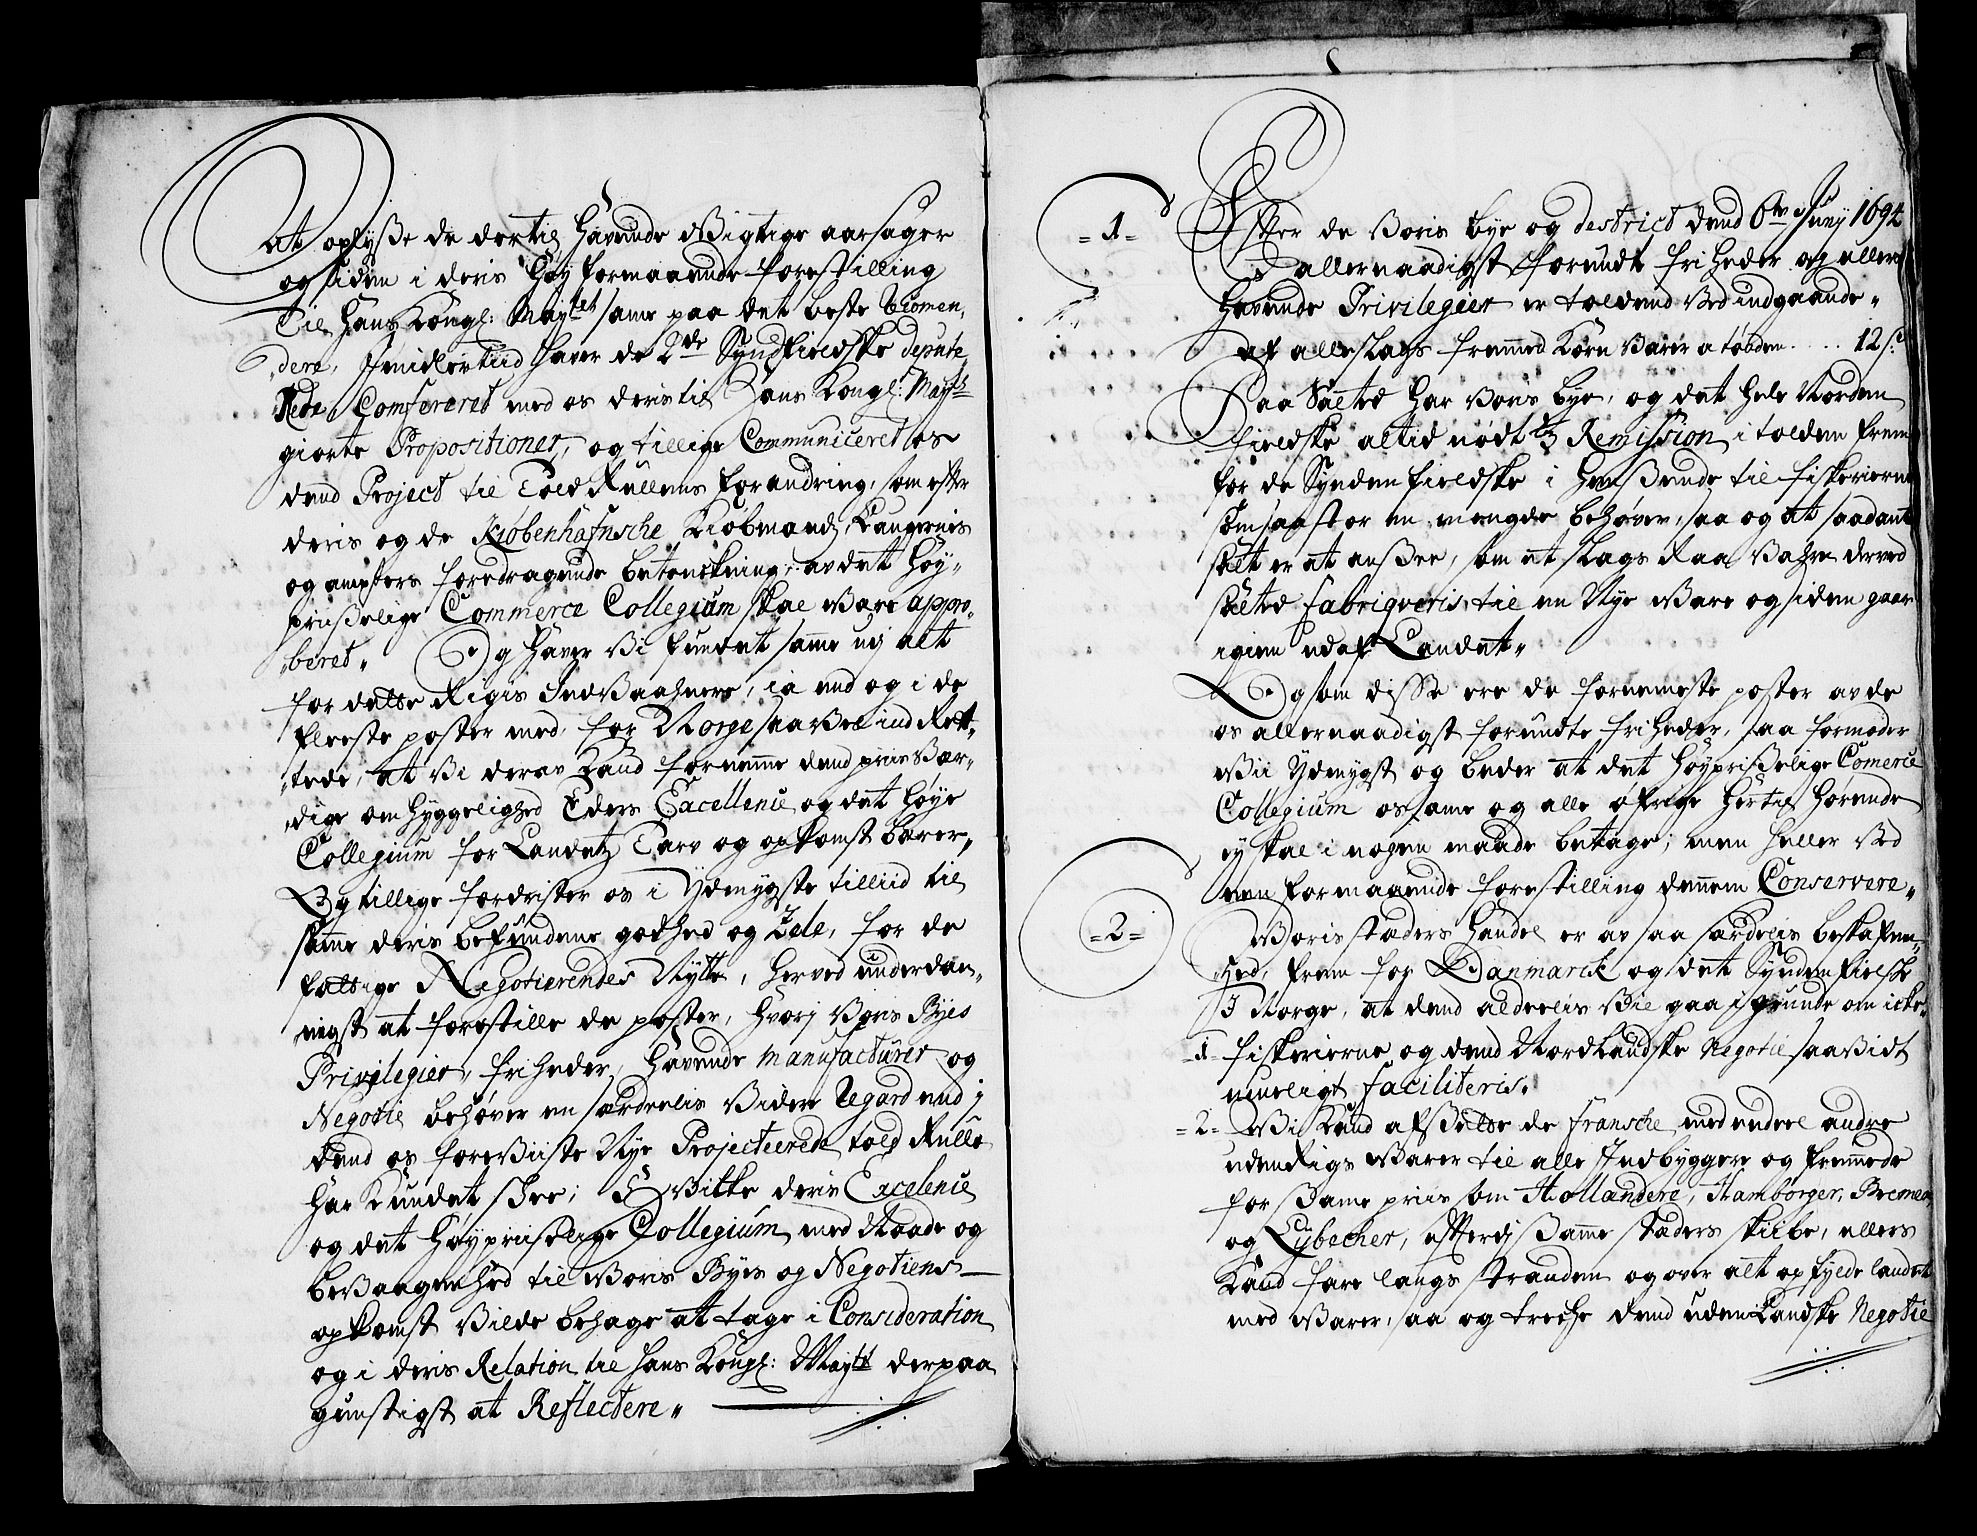 at opfylße de dertil hafuende Wigtige aarsager
og siden i deris høy formaaende forestilling
Til Hans Kongl: Maytt same paa det beste Recomen„
„dere, Imidlertiid hafuer de 2de Syndfieldske depute„
Rede Comfereret med os deris til Hans Kongl: Maytt
giorte Propositioner, og tillige Communiceret os
dend Project til Told Rullens forandring, som efter
deris og de Kiøbenhafnsche Kiøbmænds Laugernis
og ampters foredragende betenckning, av det Høy„
priißelige Commerce Collegium skal være appro„
„beret„ Og hafuer Vi fundet samme uj alt
for dette Rigis Indvaahnere, ia end og i de
fleeste poster med for Norge saavel ind Rett„
„tede, at Vi derav Kand fornemme dend priis Vær„
„dige omhyggelighed Eders Excellence og det høye
Collegium for Landetz Tarv og opkomst bærer,
Og tillige fordrister os i Ydmygste tilliid til
samme deris befundene godhed og Zele, for de
fattige Negotierendes Nytte, herved underdan„
„nigst at forestille de poster, hvorj Voris Byes
Privilegier, friheder, hafuende Manufacturer og
Negotie behøver en særdeelis Videre Regard end j
dend os foreviiste Nye Projecteerede told Rulle
har Kundet skee; Hvilke deris Excelence
og det høypriiselige Collegium med Naade og
bevaagenhed til Voris Byes og Negotiens
opkomst Vilde behage at tage i Consideration
og i deris Relation til Hans Kongl: Maytt derpaa
gunstigst at Reflectere„
=1= Efter de Voris bye og destrict dend 6te Juny 1694
allernaadigst forundte friheder og ellers
hafuende Privilegier er tolden Ved indgaaende„
af alleslags fremmed Korn Varer a tønden .... 12 s:
Paa Saltet har Voris bye, og det hele Norden
fieldske altid nødt 1/3 Remission i tolden frem
for de Syndenfieldske i henseende til fiskerierne
som saa stor en mengde behøver, saa og at saadant
salt er at ansee, som et slags Raa Vahre derved
saltet fabriqveris, til en Nye Vare og siden gaar
igien ud af Landet„
Og som disse ere de fornemeste poster av de
os allernaadigst forundte friheder, saa formoder
Vii Ydmygst og beder at det høypriißelige Comerce
Collegium os same og alle øfrige hertil hørende
ey skal i nogen maade betage; men heller Ved
een formaaende forestilling dennem Conservere„
=2= Voris stæders handel er av saa særdeelis beskafen„
hed, frem for Danmarck og det Syndenfielske
I Norge, at dend alderelis Vil gaa i grunde om icke„
=1= fiskerierne og dend Nordlandske Negotie saavidt
mueligt faciliteris.
=2= Vi Kand afsette de fransche med endeel andre
udenRigs Varer til alle Indbyggere og fremede
for samme priis som Hollændere, Hamborger, Bremer
og Lybecker, efterdj samme stæders skibe, ellers
Kand fare langs stranden og over alt opfylde landet
med Varer, saa og treche dend udenlandske Negotie